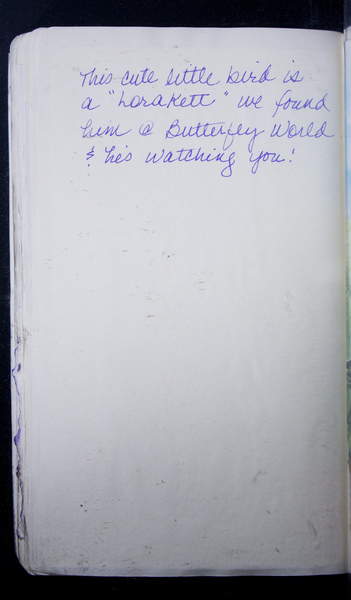 This cute little bird is
a "Lorakett" we found
him @ Butterfly World
& he's watching you!